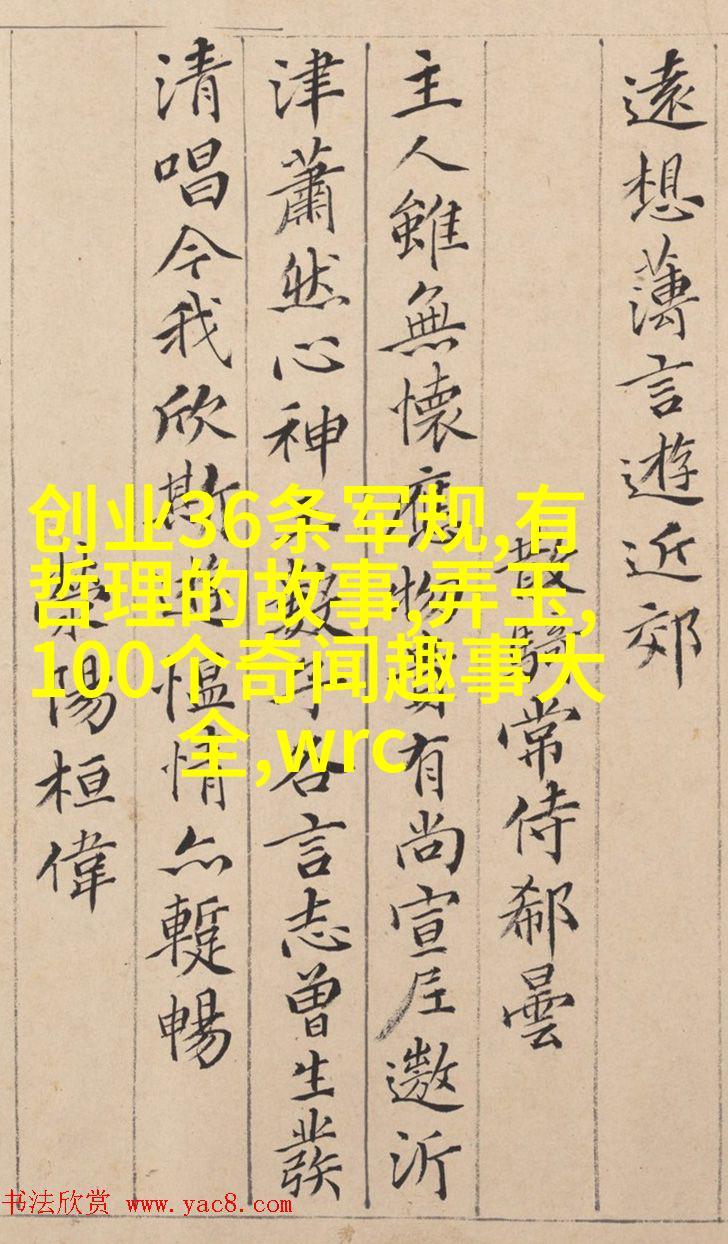 遠想薄言遊近郊
散騎常侍郗曇
主人雖無懷應物貴有尚宣尼遨沂
津蕭然心神王數子各言志曾生發
清唱今我欣斯遊慍情亦蹔暢
滎陽桓偉
创业36条军规,有
哲理的故事,弄玉,
100个奇闻趣事大
全,wrc
书法欣赏 www.yac8.com